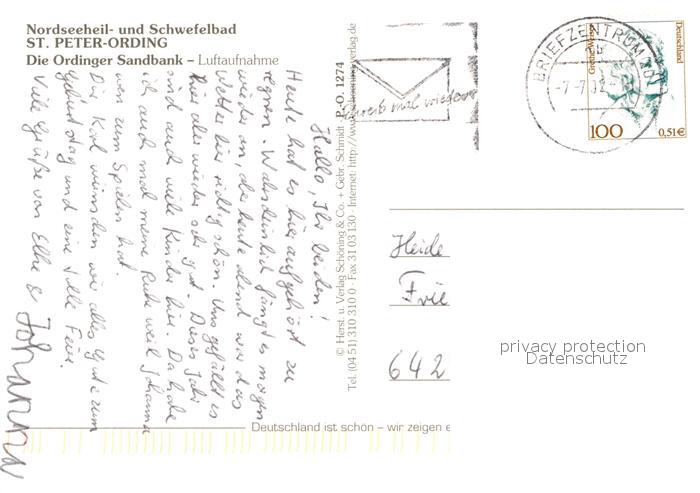 Nordseeheil- und Schwefelbad
ST. PETER-ORDING
Die Ordinger Sandbank – Luftaufnahme
Hallo, Ihr beiden!
Heute hat es hier aufgehört zu
regnen. Wahrscheinlich fängt es morgen
wieder an, aber heute abend war das
Wetter hier richtig schön. Uns gefällt es
hier aber wieder sehr gut. Dieses Jahr
sind auch viele Kinder hier. Da habe
ich auch mal meine Ruhe weil Johanna
wen zum Spielen hat.
Dir Karl wünschen wir alles Gute zum
Geburtstag und eine tolle Feier.
Viele Grüße von Elke &
Johanna
© Herst. u. Verlag Schöning & Co. + Gebr. Schmidt
P.O. 1274
Tel. (04 51) 310 310 0 · Fax 31 03 130 · Internet: http://www.schoening-verlag.de
Schreib mal wieder
BRIEFZENTRUM
Grethe Weiser
Deutschland
100
0,51€
Heide
Frie
642
privacy protection
Datenschutz
Deutschland ist schön – wir zeigen e